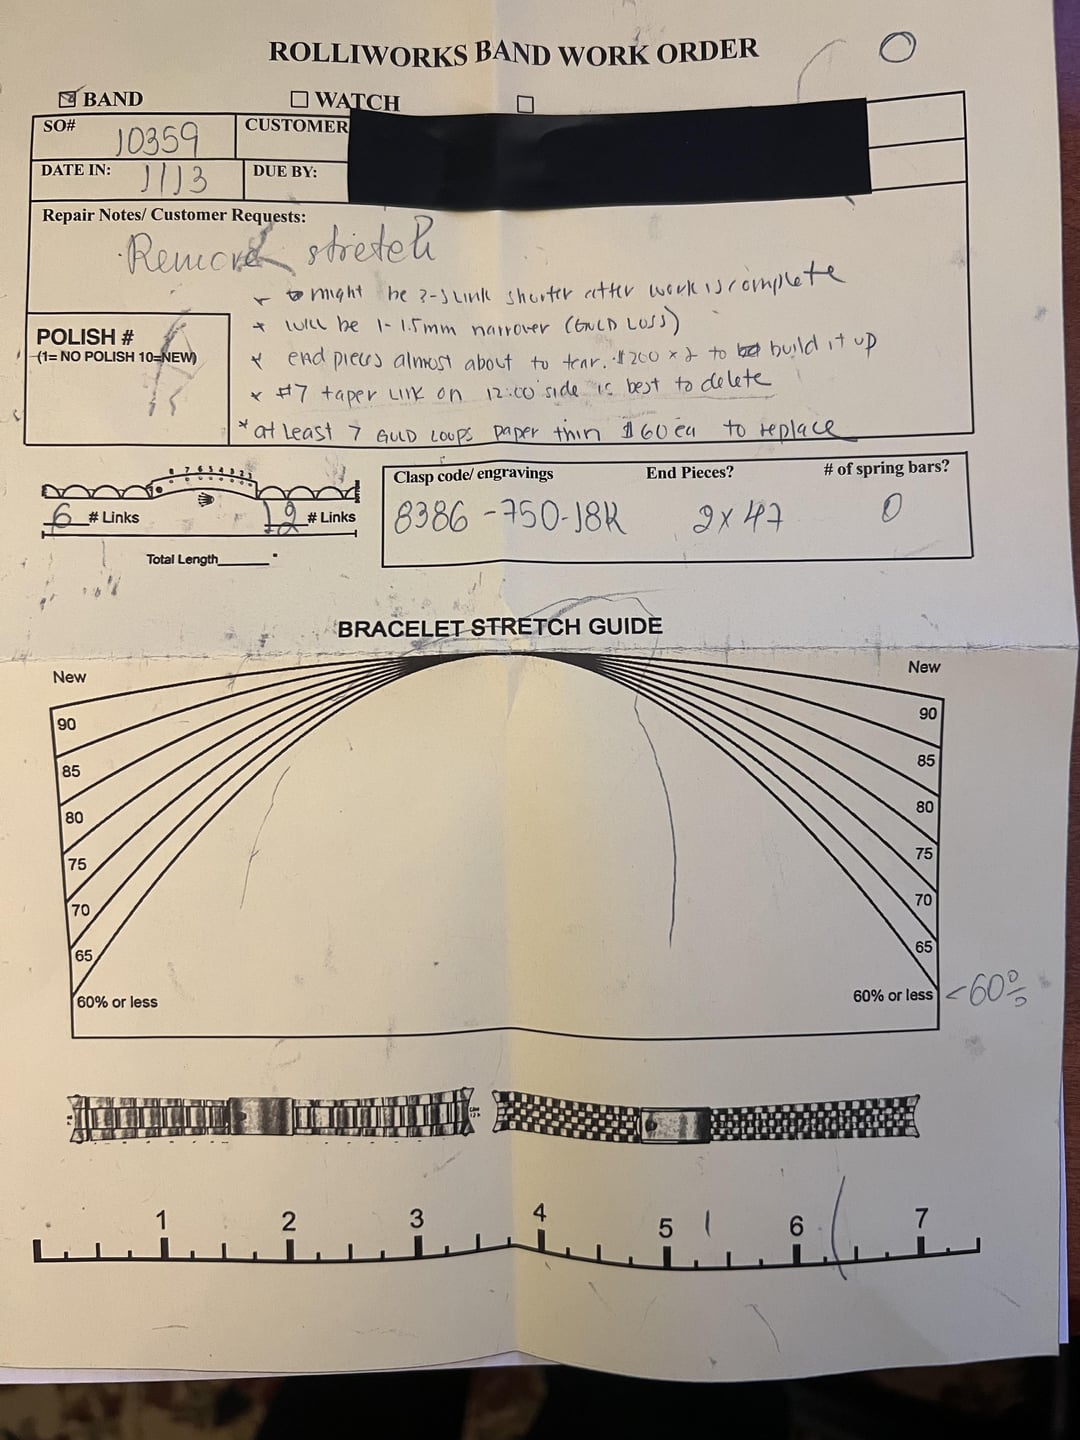 ROLLIWORKS BAND WORK ORDER
BAND
WATCH
SO# 10359
CUSTOMER
DATE IN: 1/13
DUE BY:
Repair Notes/ Customer Requests:
Remove stretch
* might be 2-3 link shorter after work is complete
* will be 1-1.5mm narrower (GOLD LOSS)
* end pieces almost about to tear. $200 x 2 to build it up
* #7 taper link on 12:00 side is best to delete
* at least 7 GOLD LOOPS paper thin $60 ea to replace
POLISH #
(1= NO POLISH 10=NEW)
8 7 6 5 4 3 2 1
6 # Links
12 # Links
Total Length "
Clasp code/ engravings
End Pieces?
# of spring bars?
8386 -750-18K
2x 47
0
BRACELET STRETCH GUIDE
New
New
90
90
85
85
80
80
75
75
70
70
65
65
60% or less
60% or less
<60%
1 2 3 4 5 6 7